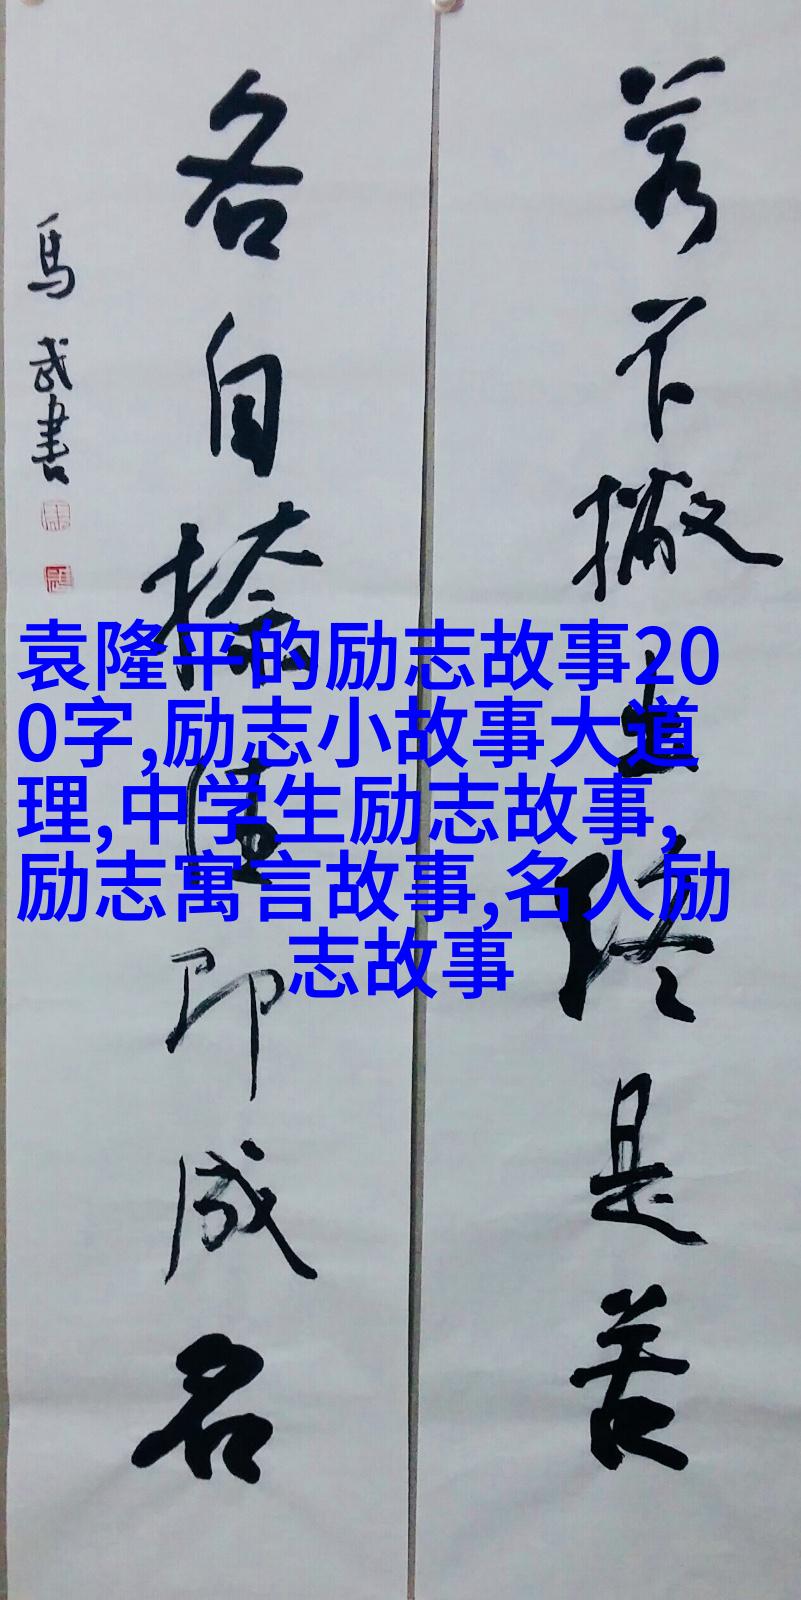 若不撇
终是苦
各自捺
即成名
馬武書
袁隆平的励志故事20
0字,励志小故事大道
理,中学生励志故事,
励志寓言故事,名人励
志故事